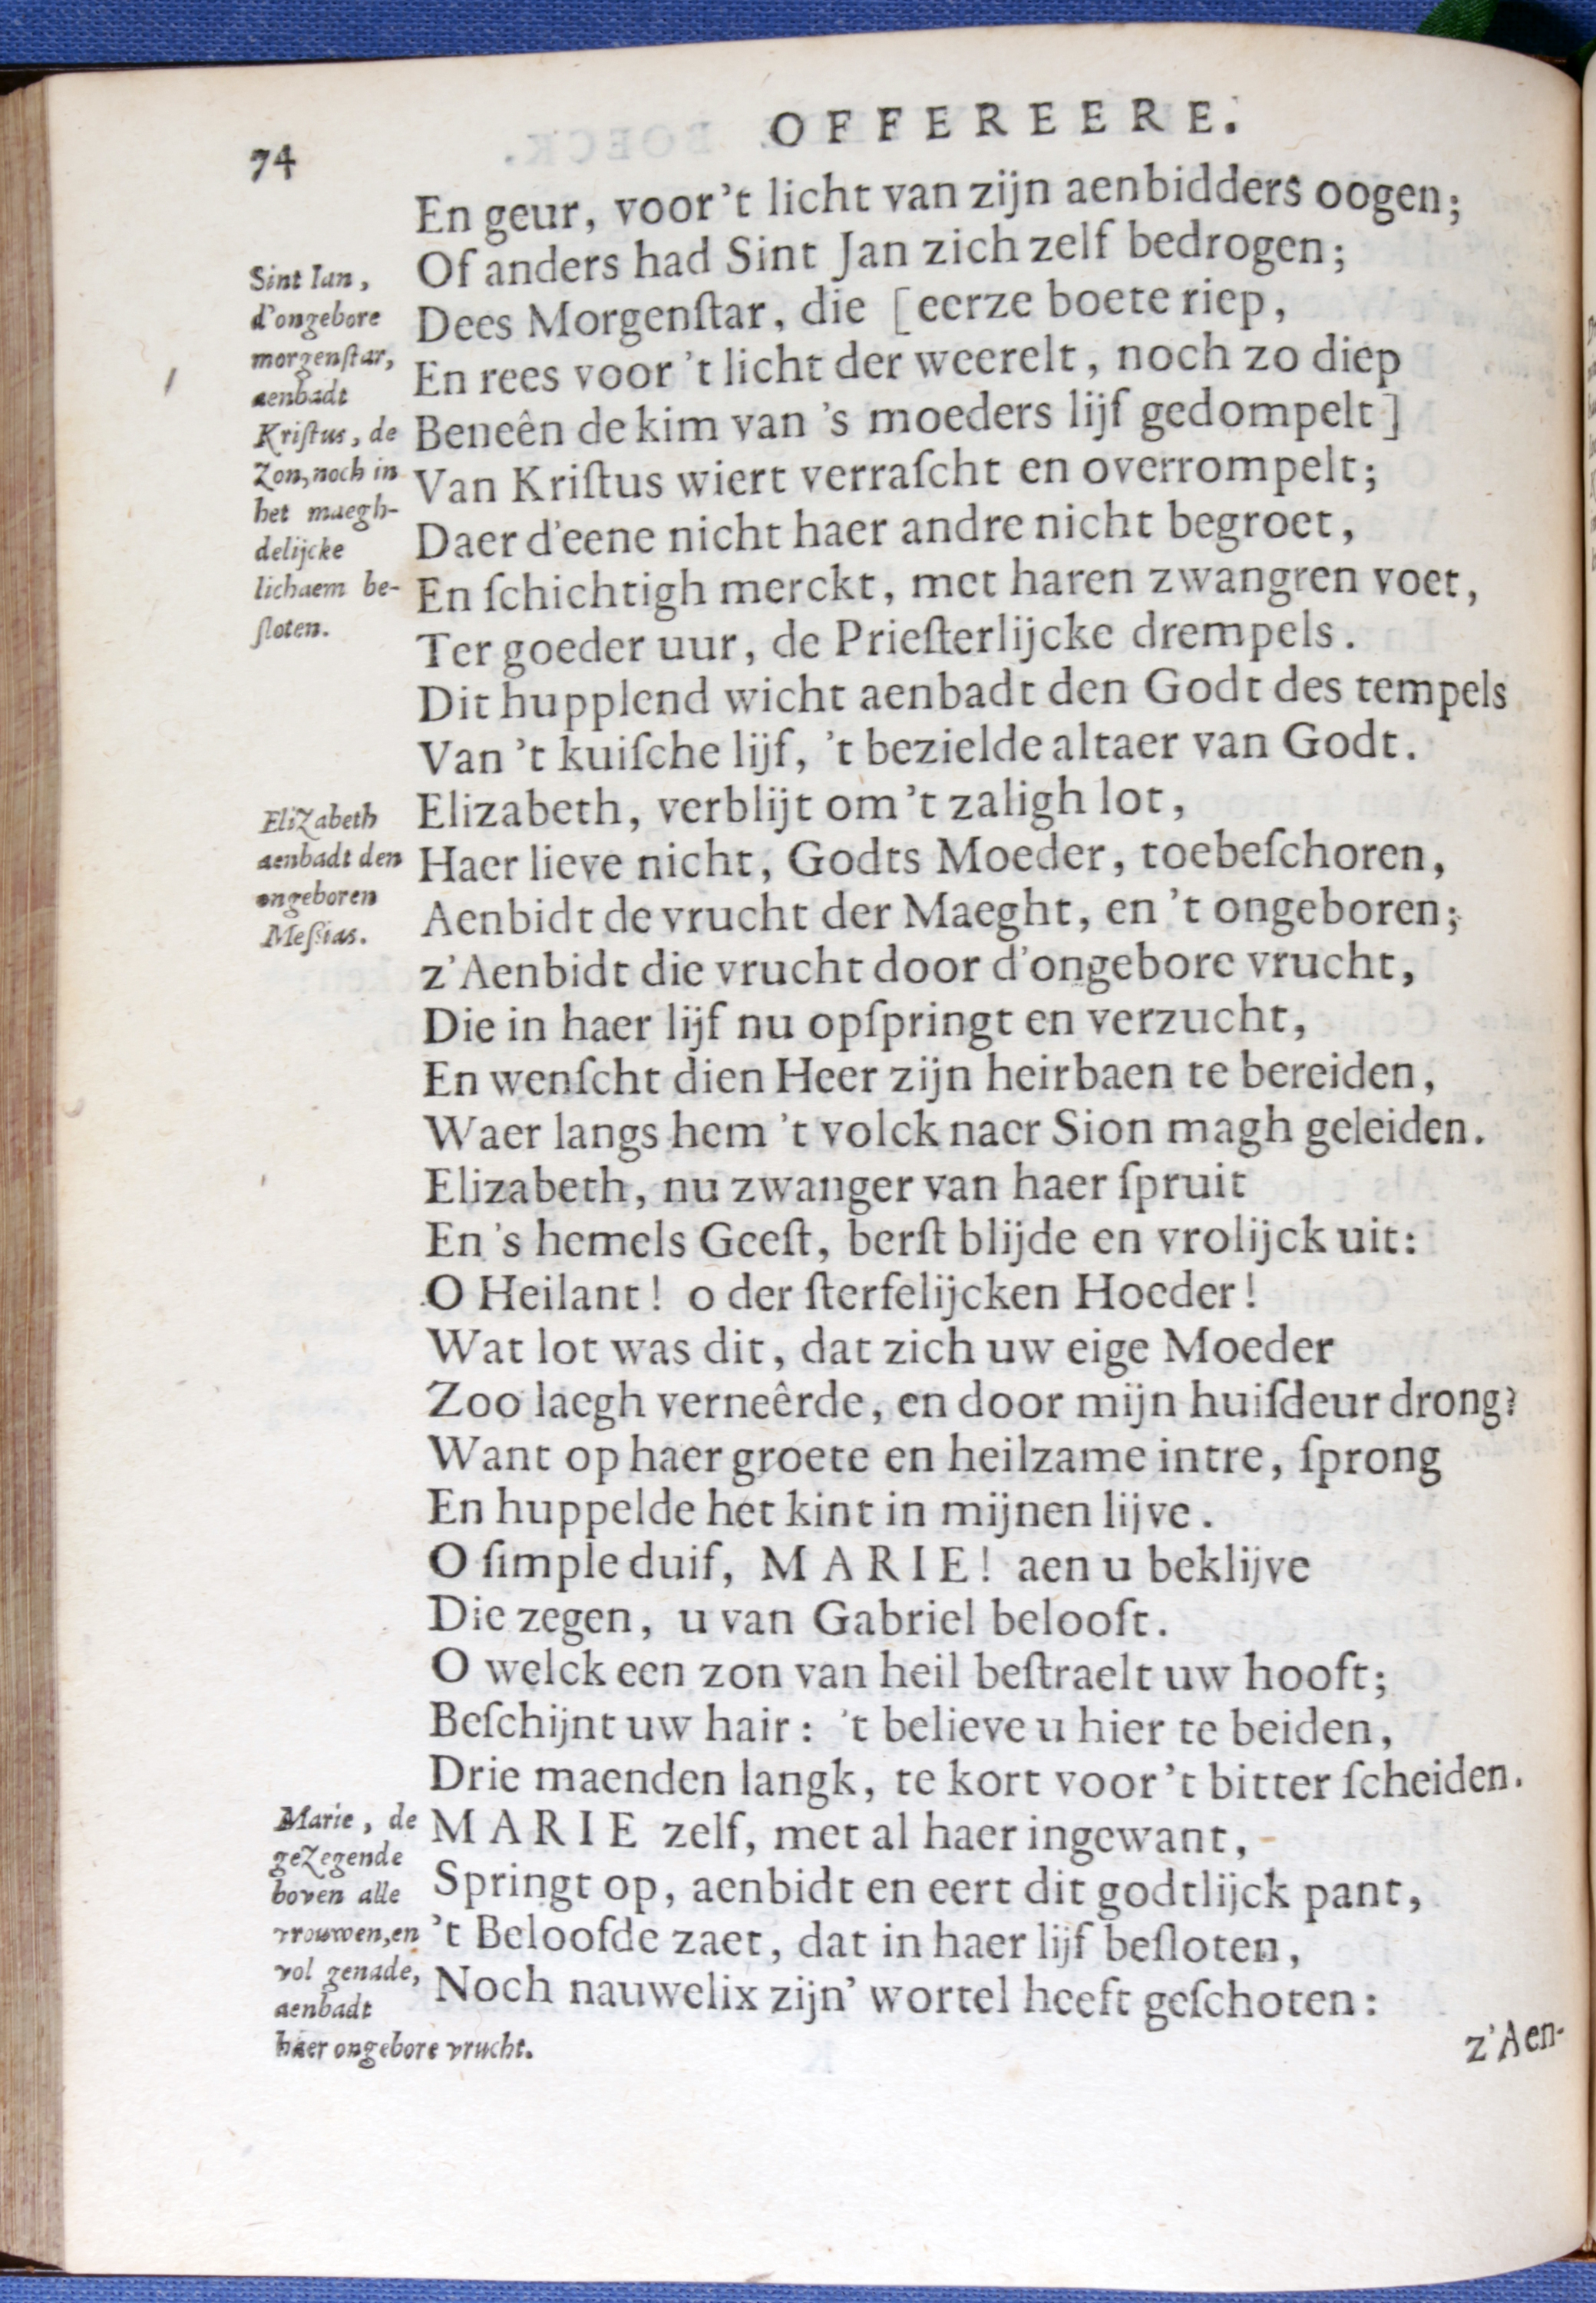 74
OFFEREERE.
En geur, voor 't licht van zijn aenbidders oogen;
Of anders had Sint Jan zich zelf bedrogen;
Dees Morgenſtar, die [eerze boete riep,
En rees voor 't licht der weerelt, noch zo diep
Beneên de kim van 's moeders lijf gedompelt]
Van Kriſtus wiert verraſcht en overrompelt;
Daer d'eene nicht haer andre nicht begroet,
En ſchichtigh merckt, met haren zwangren voet,
Ter goeder uur, de Prieſterlijcke drempels.
Dit hupplend wicht aenbadt den Godt des tempels
Van 't kuiſche lijf, 't bezielde altaer van Godt.
Elizabeth, verblijt om 't zaligh lot,
Haer lieve nicht, Godts Moeder, toebeſchoren,
Aenbidt de vrucht der Maeght, en 't ongeboren;
z'Aenbidt die vrucht door d'ongebore vrucht,
Die in haer lijf nu opſpringt en verzucht,
En wenſcht dien Heer zijn heirbaen te bereiden,
Waer langs hem 't volck naer Sion magh geleiden.
Elizabeth, nu zwanger van haer ſpruit
En 's hemels Geeſt, berſt blijde en vrolijck uit:
O Heilant! o der ſterfelijcken Hoeder!
Wat lot was dit, dat zich uw eige Moeder
Zoo laegh verneêrde, en door mijn huiſdeur drong?
Want op haer groete en heilzame intre, ſprong
En huppelde het kint in mijnen lijve.
O ſimple duif, MARIE! aen u beklijve
Die zegen, u van Gabriel belooft.
O welck een zon van heil beſtraelt uw hooft;
Beſchijnt uw hair: 't believe u hier te beiden,
Drie maenden langk, te kort voor 't bitter ſcheiden.
MARIE zelf, met al haer ingewant,
Springt op, aenbidt en eert dit godtlijck pant,
't Beloofde zaet, dat in haer lijf beſloten,
Noch nauwelix zijn' wortel heeft geſchoten:
z'Aen-
Sint Ian,
d'ongebore
morgenſtar,
aenbadt
Kriſtus, de
Zon, noch in
het maegh-
delijcke
lichaem be-
ſloten.
Elizabeth
aenbadt den
ongeboren
Meſsias.
Marie, de
gezegende
boven alle
vrouwen, en
vol genade,
aenbadt
haer ongebore vrucht.